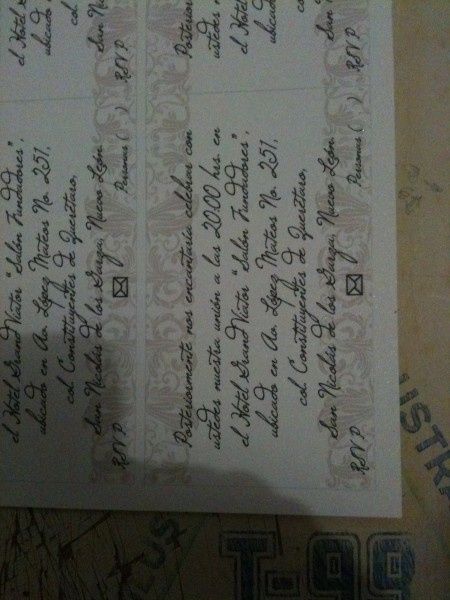 el Hotel Grand Viator "Salón Fundadores",
ubicado en Av. López Mateos No. 251,
col. Constituyentes de Queretaro,
San Nicolás de los Garza, Nuevo León
RSVP Personas ( )
el Hotel
ubicado
col.
San Ni
RSVP
Posteriormente nos encantaría celebrar con
ustedes nuestra unión a las 20:00 hrs. en
el Hotel Grand Viator "Salón Fundadores",
ubicado en Av. López Mateos No. 251,
col. Constituyentes de Queretaro,
San Nicolás de los Garza, Nuevo León
RSVP Personas ( )
Posterior
ustedes n
el Hotel
ubicado
col.
San Ni
RSVP
T-99